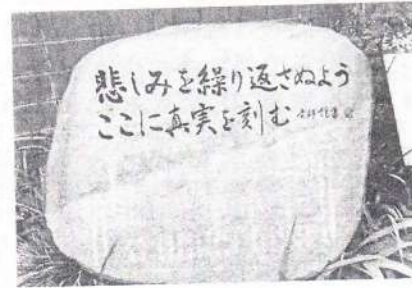 悲しみを繰り返さぬよう
ここに真実を刻む